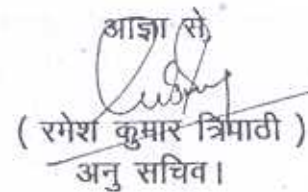 आज्ञा से,
( रमेश कुमार त्रिपाठी )
अनु सचिव।